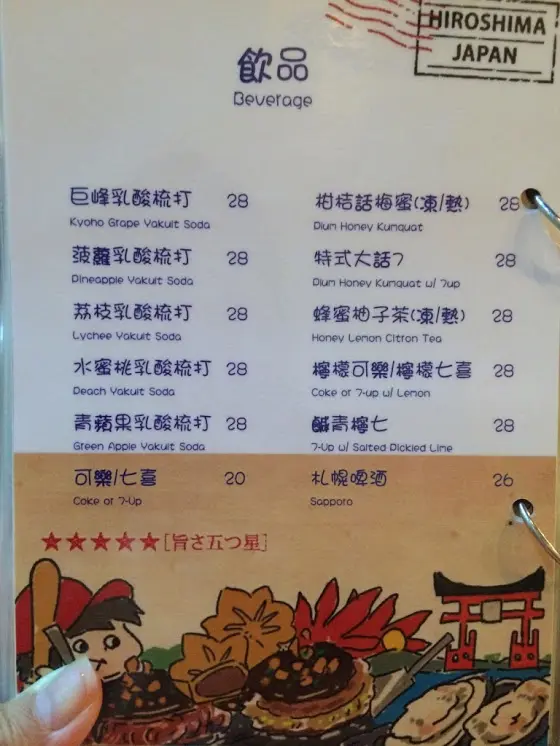 HIROSHIMA
JAPAN
飲品
Beverage
巨峰乳酸梳打 28
Kyoho Grape Yakult Soda
菠蘿乳酸梳打 28
Pineapple Yakult Soda
荔枝乳酸梳打 28
Lychee Yakult Soda
水蜜桃乳酸梳打 28
Peach Yakult Soda
青蘋果乳酸梳打 28
Green Apple Yakult Soda
可樂/七喜 20
Coke or 7-Up
柑桔話梅蜜(凍/熱) 28
Plum Honey Kumquat
特式大話7 28
Plum Honey Kumquat w/ 7up
蜂蜜柚子茶(凍/熱) 28
Honey Lemon Citron Tea
檸檬可樂/檸檬七喜 28
Coke or 7-up w/ Lemon
鹹青檸七 28
7-Up w/ Salted Pickled Lime
札幌啤酒 26
Sapporo
★★★★★[旨さ五つ星]